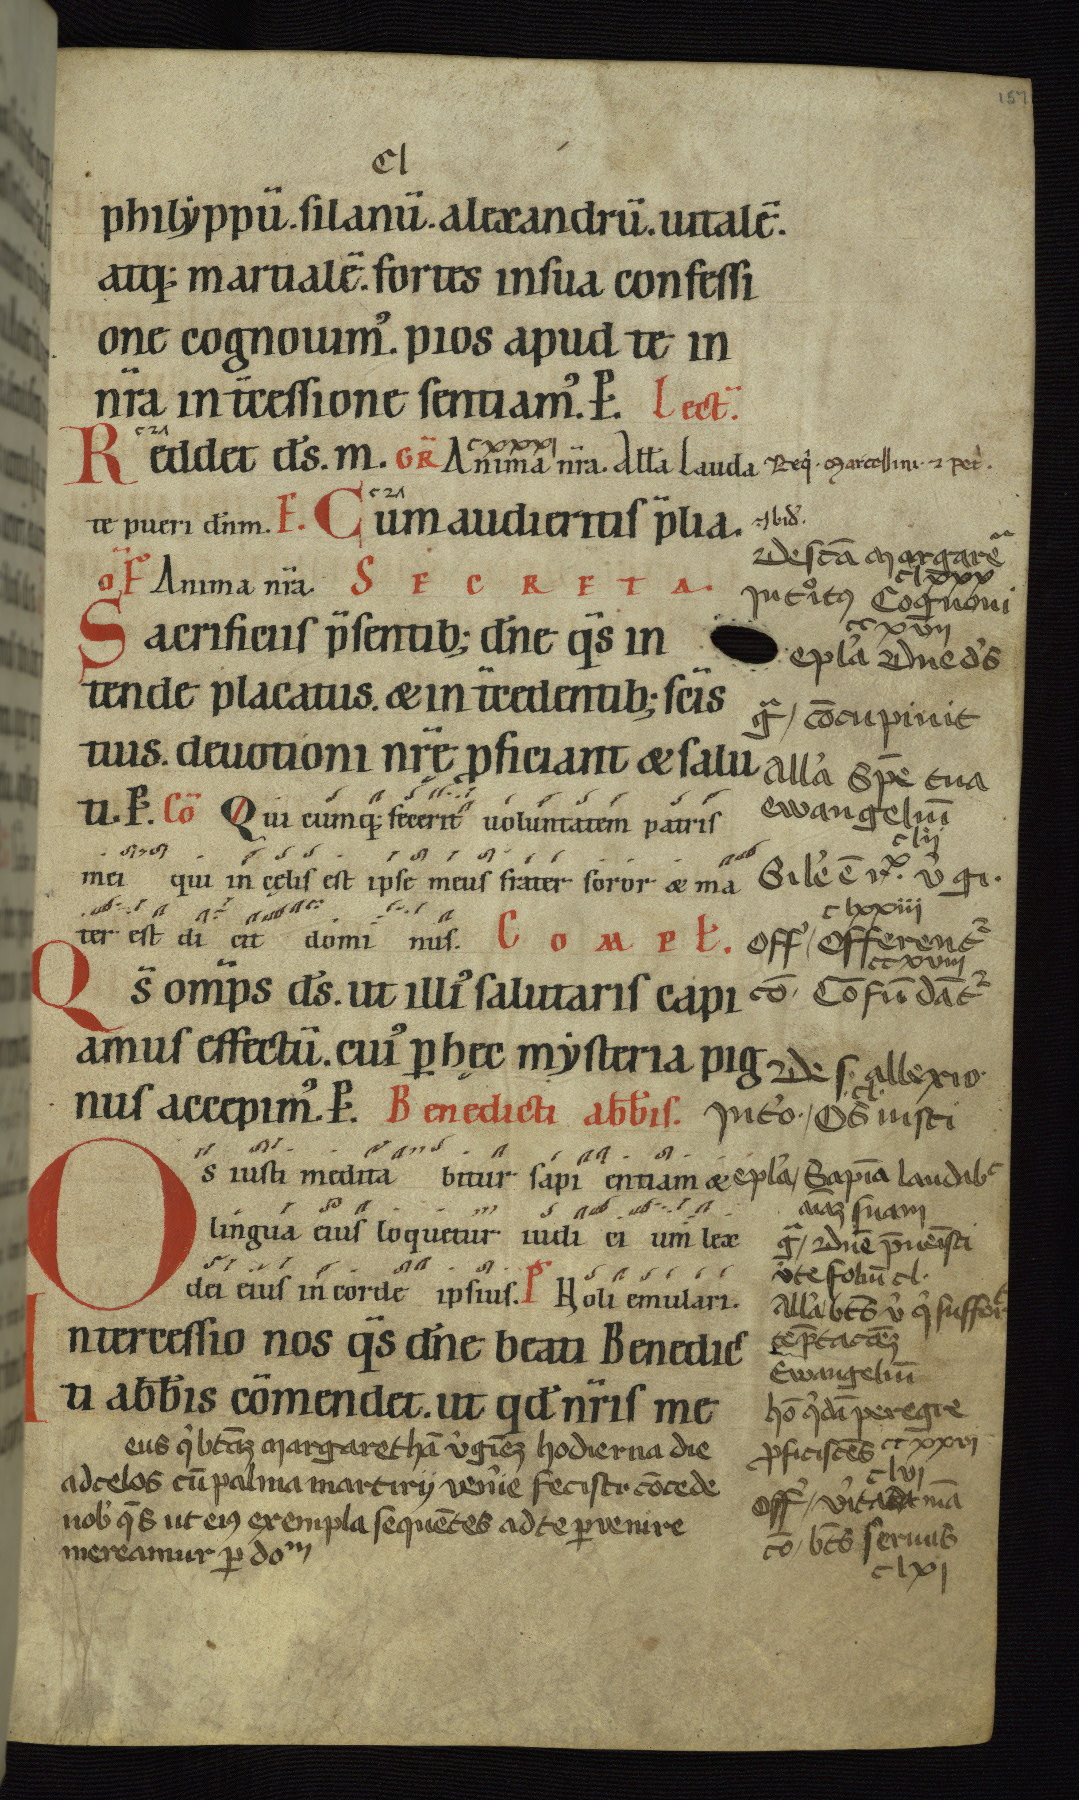 157
cl
philẏppū. silanū. alexandrū. uitalē.
atq; martialē. fortes insua confessi
one cognouim᷒. pios apud te in
nr̄a int̄cessione sentiam᷒. P. Lect̄.
ccɿʌ
Reddet ds̄. m. GR̄ Anima nr̄a. All̄a Lauda
cxxxxi
Req. Marcellini ⁊ pet̄.
te pueri dn̄m. E. Cum audieritis p̄lia.
ccɿʌ
ibid̄.
oF̄ Anima nr̄a. SECRETA.
Sacrificiis p̄sentib; dn̄e qs̄ in
tende placatus. & int̄cedentib; scīs
tuis. deuotioni nr̄ę ꝓficiant & salu
ti. P. Cō Qui cumq; fecerit uoluntatem patris
mei qui in cęlis est ipse meus frater soror & ma
ter est dicit dominus. Compl̄.
Qs̄ omp̄s ds̄. ut illi᷒ salutaris capi
amus effectū. cui᷒ ꝑ hęc mẏsteria pig
nus accepim᷒. P. Benedicti abb̄is.
Os iusti meditabitur sapientiam &
lingua eius loquetur iudicium lex
dei eius in corde ipsius. P Noli emulari.
Intercessio nos qs̄ dn̄e beati Benedic
ti abb̄is cōmendet. ut qd̄ nr̄is me
eus q̇ btāꝫ margarethā v̇giēꝫ hodierna die
ad celos cū palma martirij venīe fecisti. cōcede
nob̄ qs̄ ut eiꝰ exempla sequētes ad te ꝑvenire
mereamur ꝑ doᵐ
De scā margareᵃ
clxxx
Introitꝰ Cognoui
ccxvii
epl̄a Dne ds̄
gᵃ / cōcupiuit
All̄a Spē tua
ewangeliū
clii
Sil̄e ē r. v̇gi.
clxxiiii
off / Offerent᷑
ccxviii
cō. Cōfūdāt᷑
De s. allexio
cl
Int̄o. / Os iusti
epl̄a / Sapīa laudabᶜ
aīaꝫ suam
gᵃ / Dnē p̄ueīsti
v̄te foliū cl.
All̄a bt̄s v̇ q̇ suffert
tēptacōeꝫ
Ewangeliū
hō q̇dā peregre
ꝓficiscēs ccxxvi
clvi
off / v̇itas mā
cō / bt̄s seruus
clxi